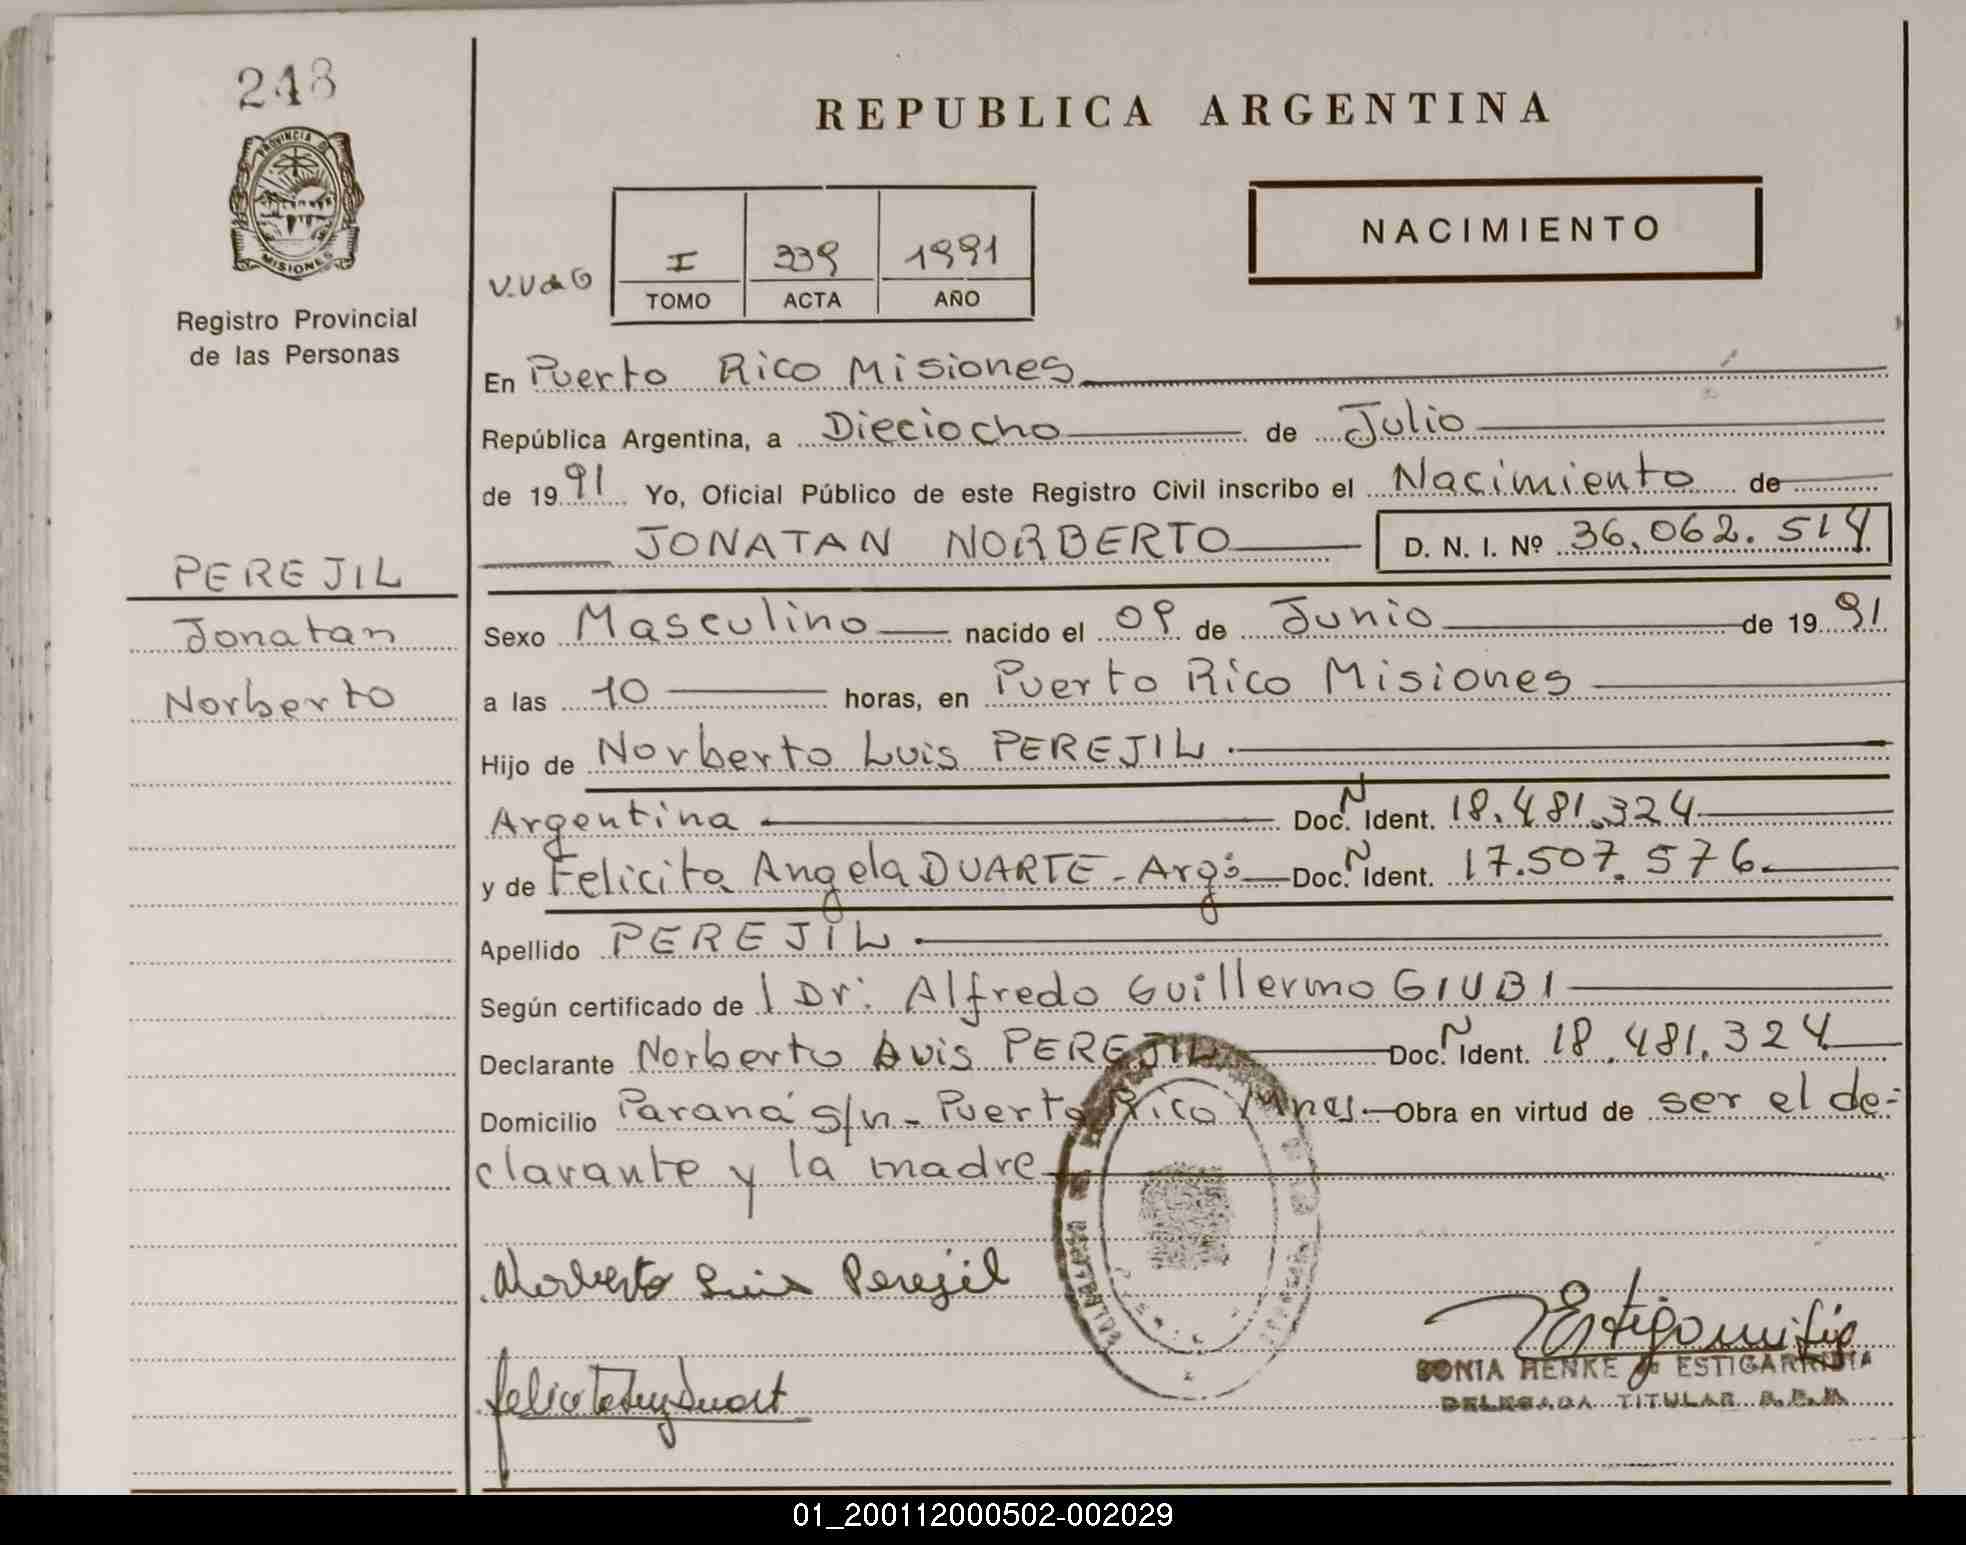 248
PROVINCIA DE
MISIONES
Registro Provincial
de las Personas
PEREJIL
Jonatan
Norberto
REPUBLICA ARGENTINA
NACIMIENTO
V.V de G
I 239 1991
TOMO ACTA AÑO
En Puerto Rico Misiones
República Argentina, a Dieciocho de Julio
de 1991 Yo, Oficial Público de este Registro Civil inscribo el Nacimiento de
JONATAN NORBERTO D. N. I. Nº 36.062.514
Sexo Masculino nacido el 09 de Junio de 1991
a las 10 horas, en Puerto Rico Misiones
Hijo de Norberto Luis PEREJIL
Argentina Doc. N Ident. 18.481.324
y de Felicita Angela DUARTE - Argª Doc. N Ident. 17.507.576
Apellido PEREJIL
Según certificado de l Dr: Alfredo Guillermo GIUBI
Declarante Norberto Luis PEREJIL Doc. N Ident. 18.481.324
Domicilio Paraná s/n - Puerto Rico Mnes. Obra en virtud de ser el de-
clarante y la madre
Norberto Luis Perejil
SONIA HENKE de ESTIGARRIBIA
DELEGADA TITULAR R.P.P.
01_200112000502-002029